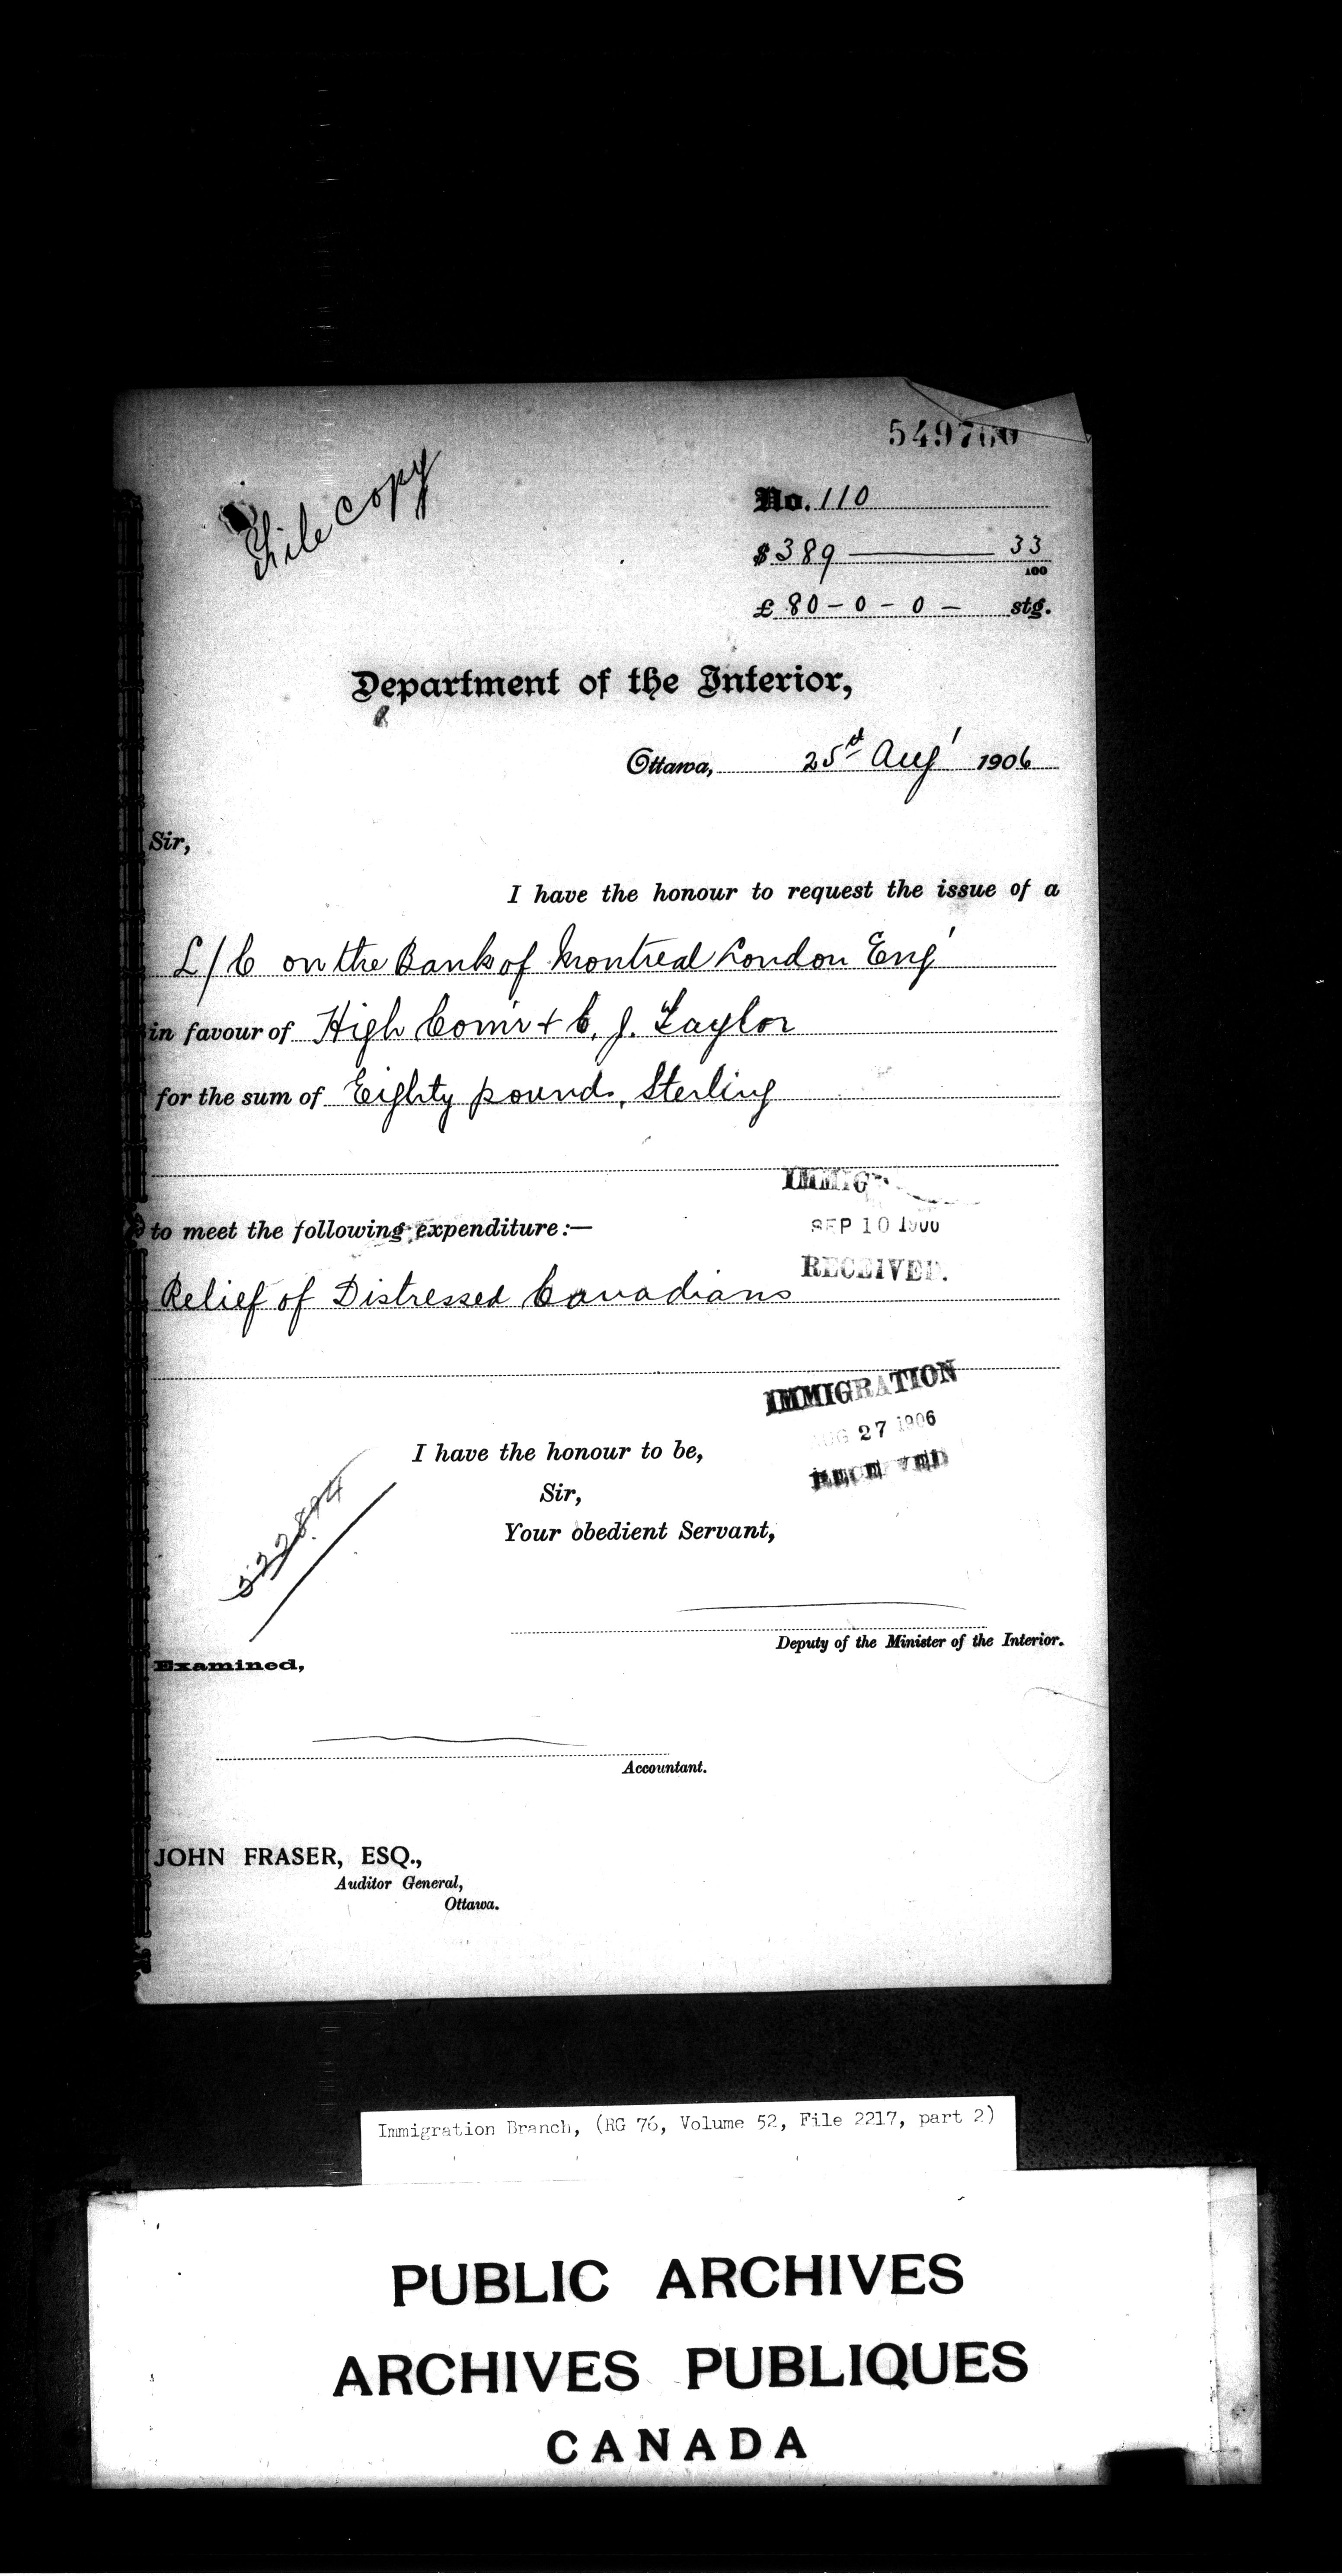 549760
File Copy
No. 110
$ 389 — 33
100
£ 80 - 0 - 0 - stg.
Department of the Interior,
Ottawa, 25th Aug' 1906
Sir,
I have the honour to request the issue of a
L/C on the Bank of Montreal London Eng'
in favour of High Com'r + C. J. Taylor
for the sum of Eighty pounds, Sterling
IMMIG
SEP 10 1906
to meet the following expenditure:—
RECEIVED.
Relief of Distressed Canadians
IMMIGRATION
AUG 27 1906
RECEIVED
I have the honour to be,
Sir,
Your obedient Servant,
Deputy of the Minister of the Interior.
Examined,
Accountant.
JOHN FRASER, ESQ.,
Auditor General,
Ottawa.
Immigration Branch, (RG 76, Volume 52, File 2217, part 2)
PUBLIC ARCHIVES
ARCHIVES PUBLIQUES
CANADA